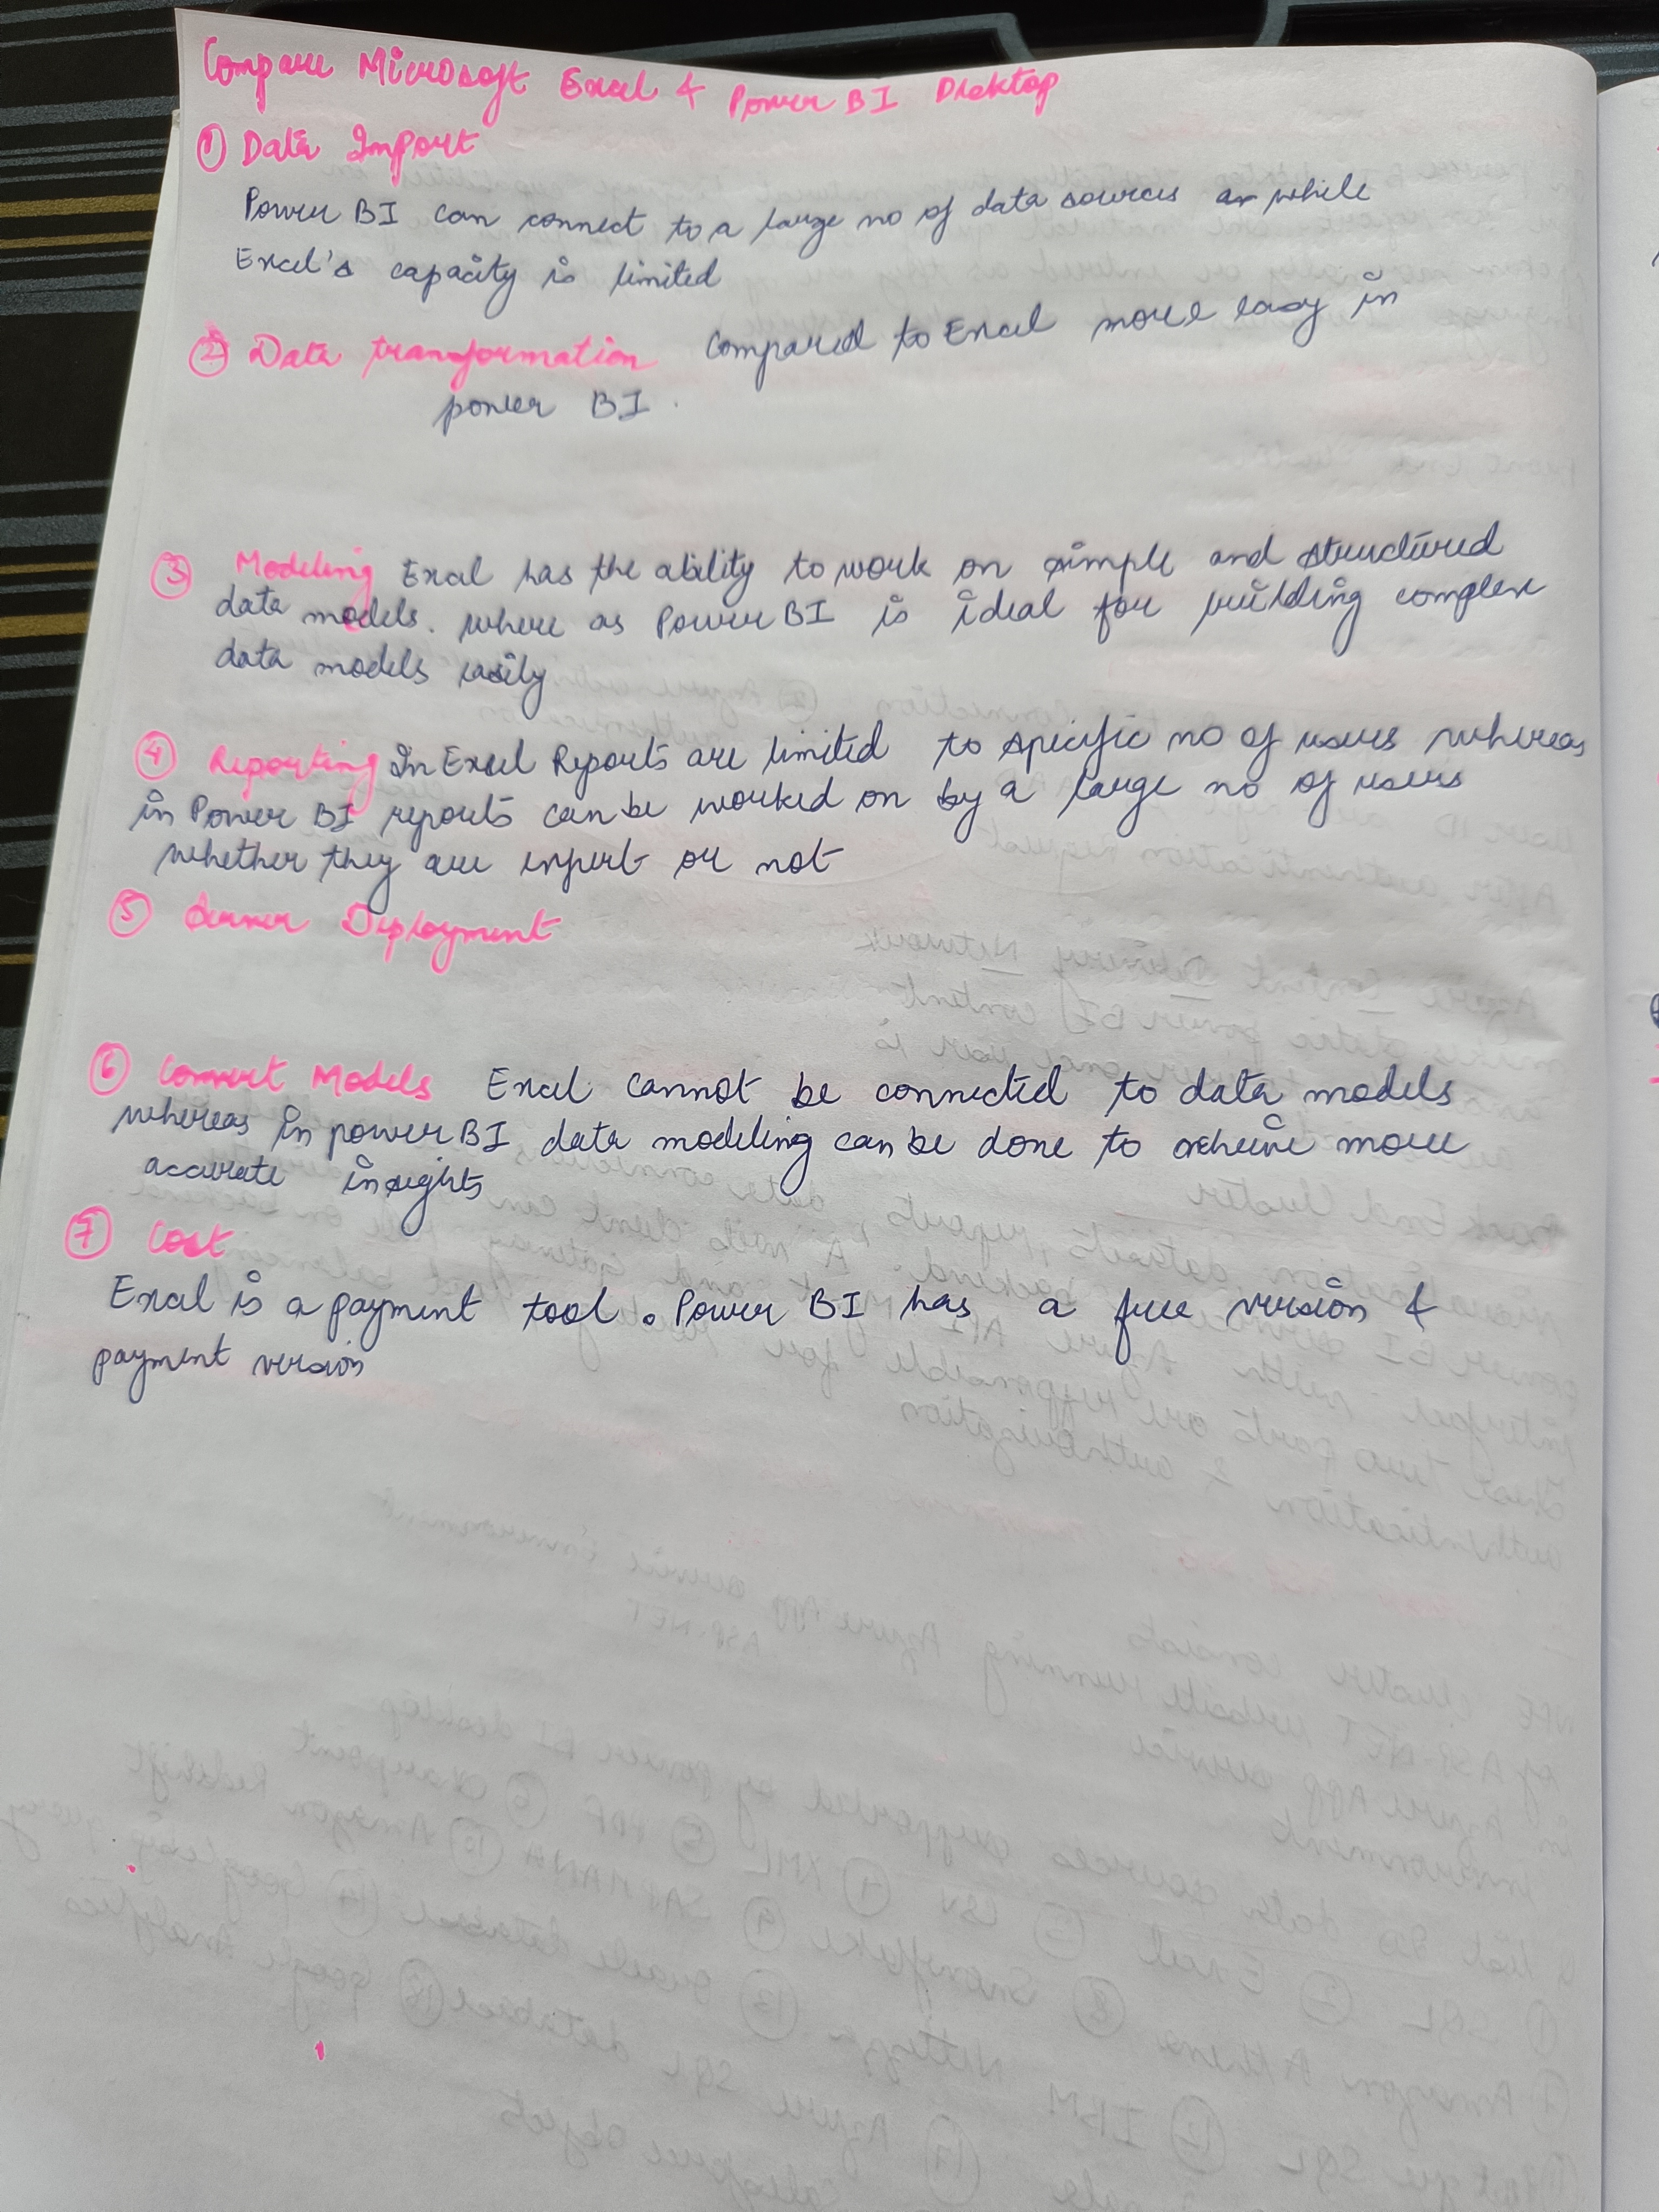 Compare Microsoft Excel & Power BI Desktop
① Data Import
Power BI can connect to a large no of data sources while
Excel's capacity is limited
② Data transformation Compared to Excel more easy in
power BI.
③ Modeling Excel has the ability to work on simple and structured
data models. where as Power BI is ideal for building complex
data models easily
④ Reporting In Excel Reports are limited to specific no of users whereas
in Power BI reports can be worked on by a large no of users
whether they are expert or not
⑤ Server Deployment
⑥ Convert Models Excel cannot be connected to data models
whereas in power BI data modeling can be done to acheive more
accurate insights
⑦ Cost
Excel is a payment tool. Power BI has a free version &
payment version